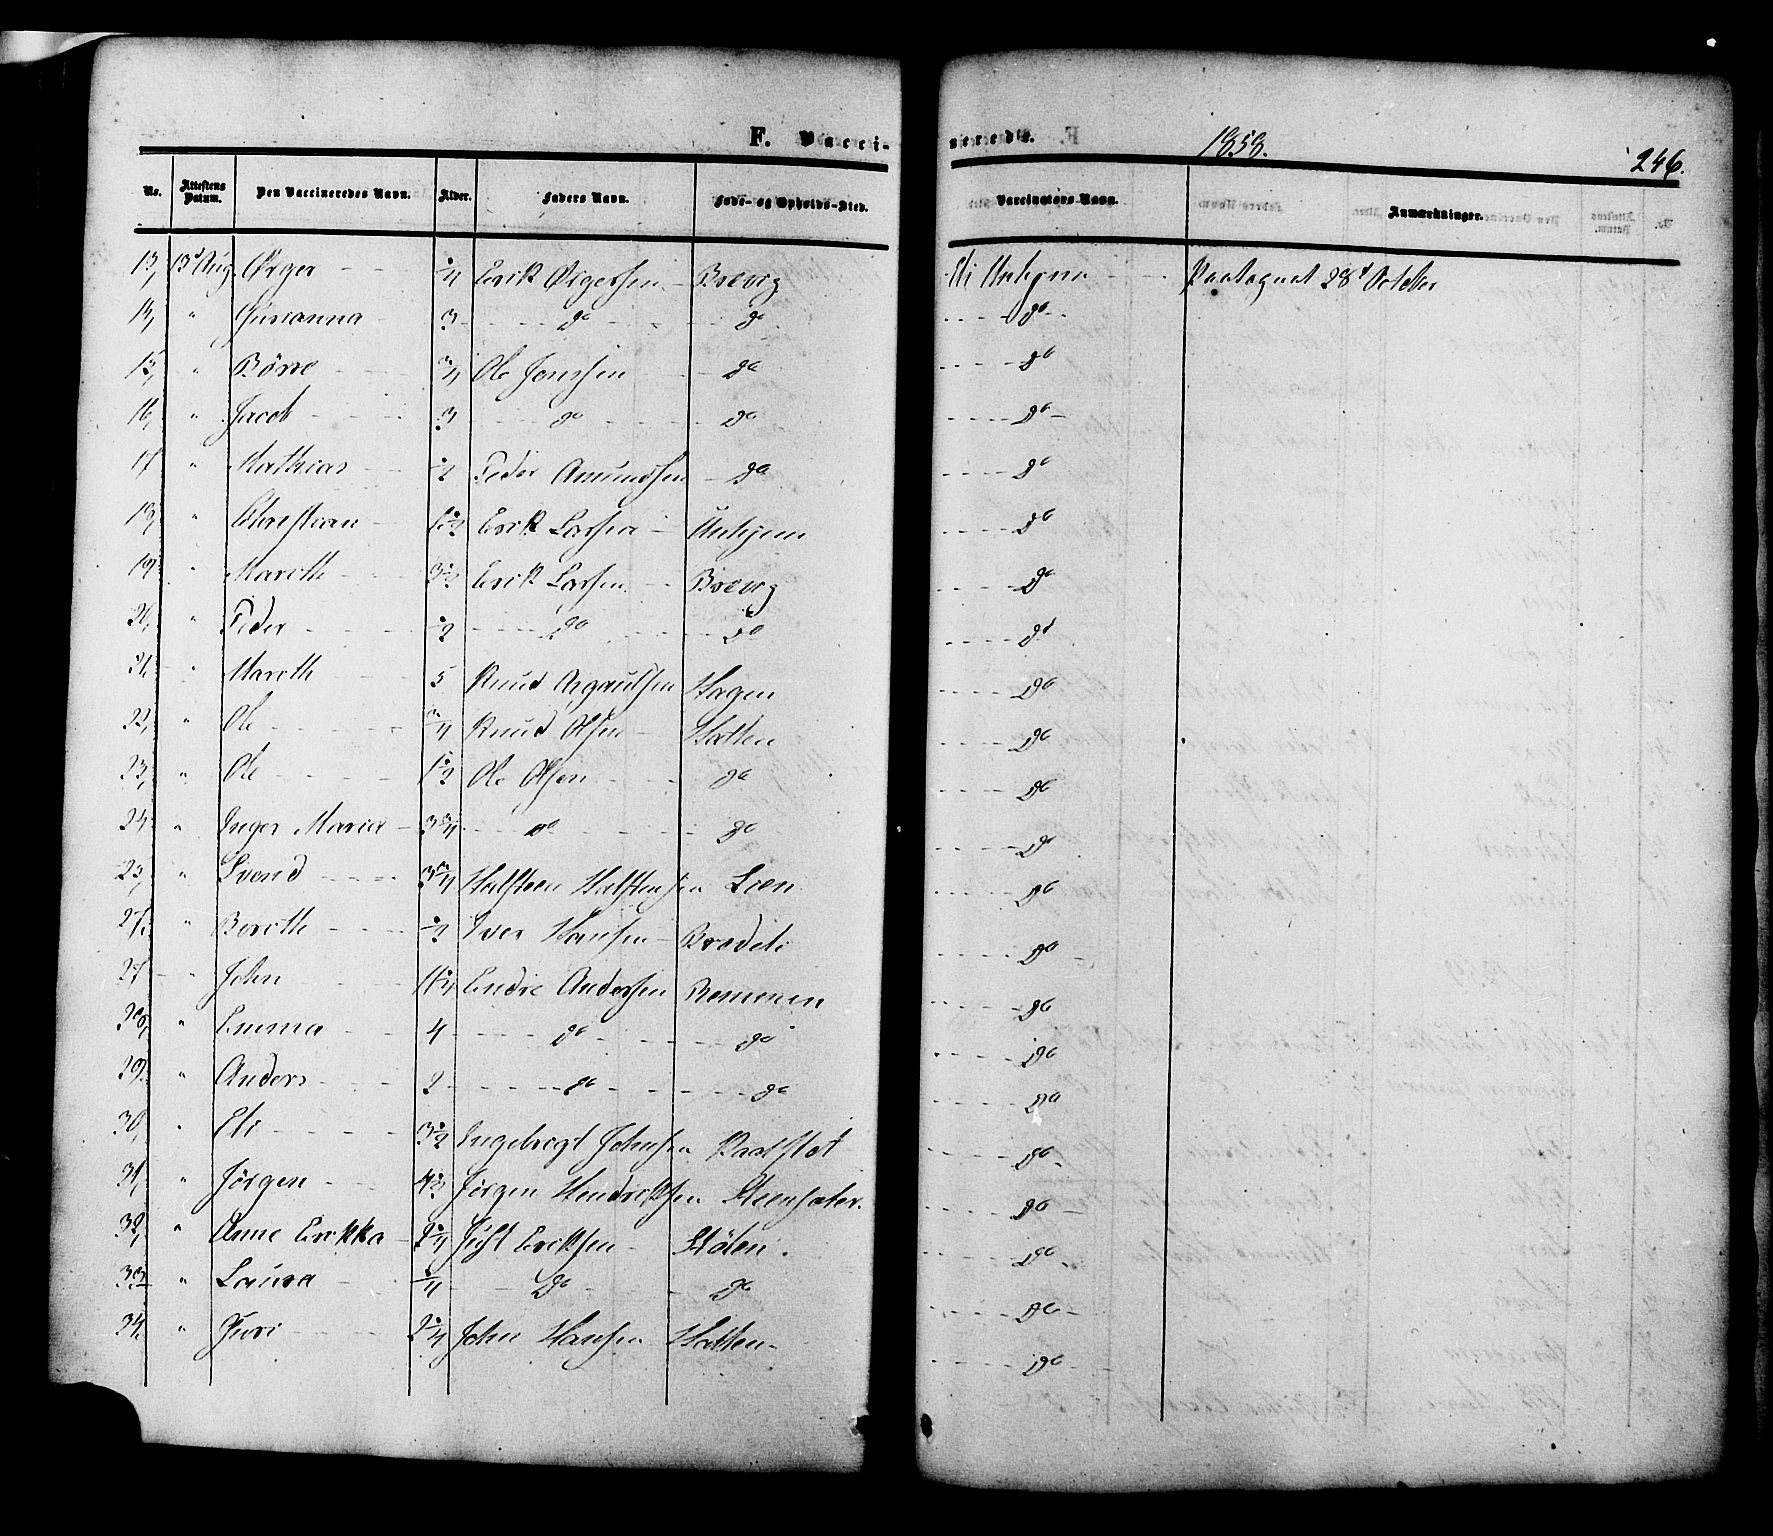 F. Vacci-
neredes.
1858.
246.
No. Attestens Datum. Den Vaccineredes Navn. Alder. Faders Navn. Føde- og Opholds-Sted. Vaccinators Navn. Anmærkninger.
13, 13d Aug Ørger 1/4 Erik Ørgersen Brevig Eli Unhjem 28d October
14, " Gurianna 3 do do do
15, " Börre 3/4 Ole Jenssen do do
16, " Jacob 3 do do do
17 " Mathias 1/2 Peder Amundsen do do
18, " Christian 1 1/2 Erik Larsen Unhjem do
19, " Marith 3 1/2 Erik Larsen Brevig do
20, " Peder 1/2 do do do
21. " Marith 5 Knud Hagen do
22, " Ole 3/4 Knud Olsen Hatten do
23, " Ole 1 1/2 Ole Olsen do do
24, " Inger Maria 3 3/4 do do do
25, " Svend 3 3/4 Halsteen Halstensen Lien do
27. " Berith 1/2 Iver Hansen Brodeli do
27 " John 1 1/4 Endre Andersen Remmem do
28, " Emma 4 do do do
29. " Anders 2 do do do
30, " Eli 3 1/2 Ingebrigt Johnsen do
31, " Jörgen 4 1/2 Jörgen Hendriksen Steensæter. do
32, " Anne Erikka 2 1/4 Just Eriksen Stölen. do
33 " Laura 1/4 do do do
34, " Guri 2 1/4 John Hansen Hatten do